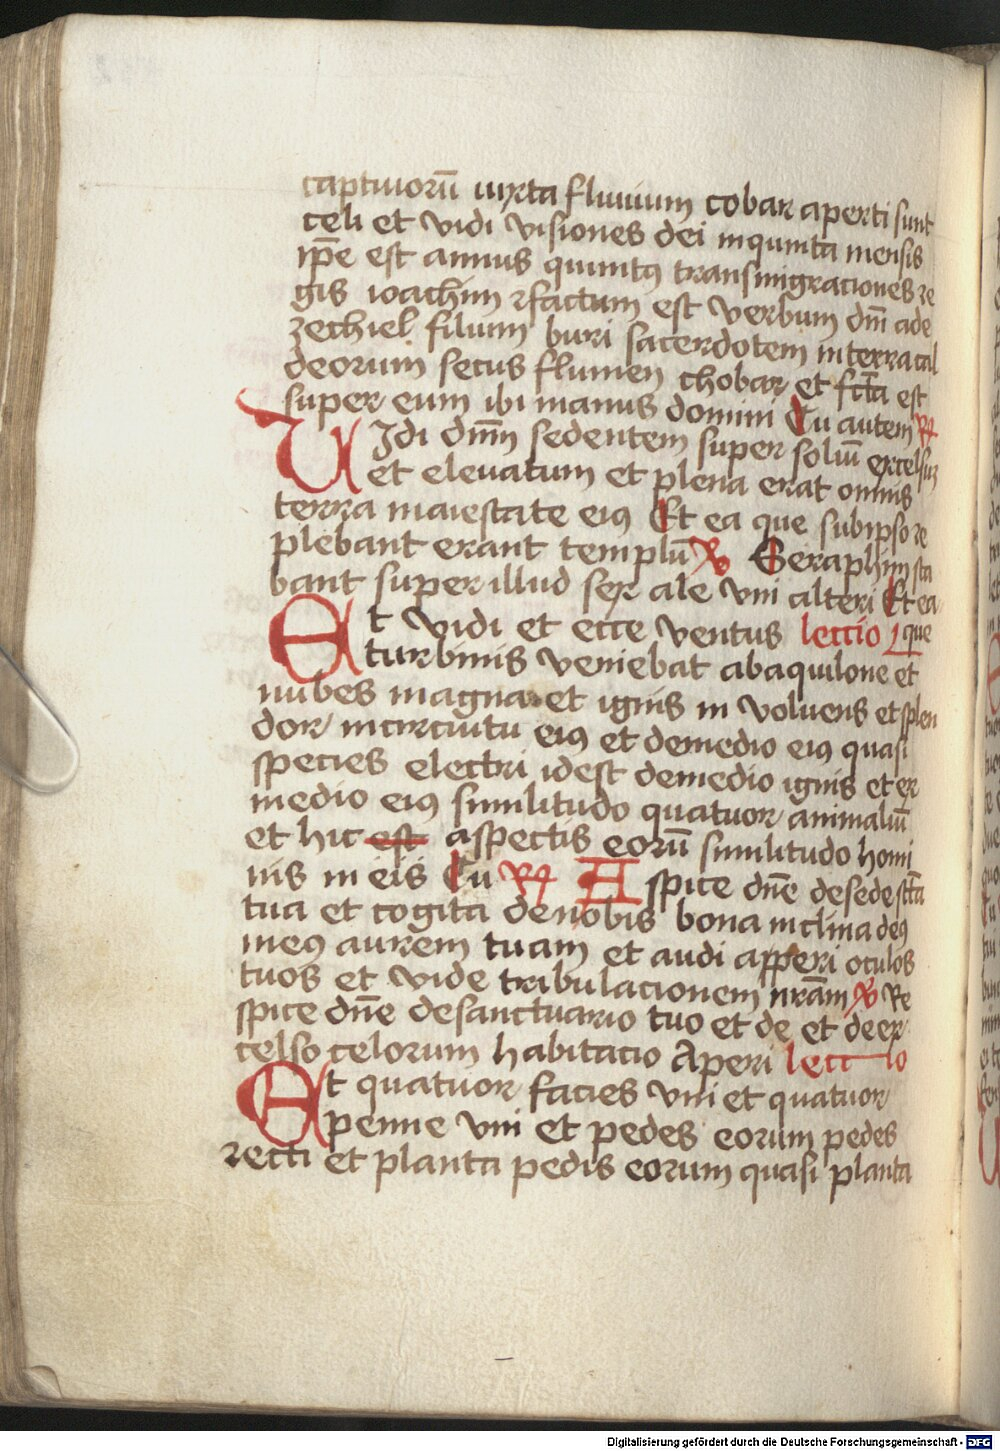 captiuorū iuxta fluuium cobar aperti sunt
celi et vidi visiones dei inquinta mensis
ip̄e est annus quintꝰ transmigraciones re
gis ioachim ⁊factum est verbum dn̄i ade
zechiel filium buri sacerdotem interra cal
deorum secus flumen chobar et fctā est
super eum ibi manus domini Tu autem R̷
VIdi dn̄m sedentem super soliū excelsuꝫ
et eleuatum et plena erat omnis
terra maiestate eiꝰ Et ea que subipso re
plebant erant templū V̷ Seraphim sta
bant super illud sex ale vni alteri Et ea
Et vidi et ecce ventus lectio que
turbinis veniebat abaquilone et
nubes magna et ignis in voluens et splen
dor incircuitu eiꝰ et demedio eiꝰ quasi
species electri idest demedio ignis et ex
medio eiꝰ similitudo quatuor animaliū
et hic est aspectis eorū similitudo homi
nis in eis Tu R̷ Aspice dn̄e desede sctā
tua et cogita denobis bona inclina deꝰ
meꝰ aurem tuam et audi apperi oculos
tuos et vide tribulacionem nrām V̷ Re
spice dn̄e desanctuario tuo et de et deex
celso celorum habitacio Aperi lectio
Et quatuor facies vni et quatuor
penne vni et pedes eorum pedes
recti et planta pedis eorum quasi planta
Digitalisierung gefördert durch die Deutsche Forschungsgemeinschaft - DFG